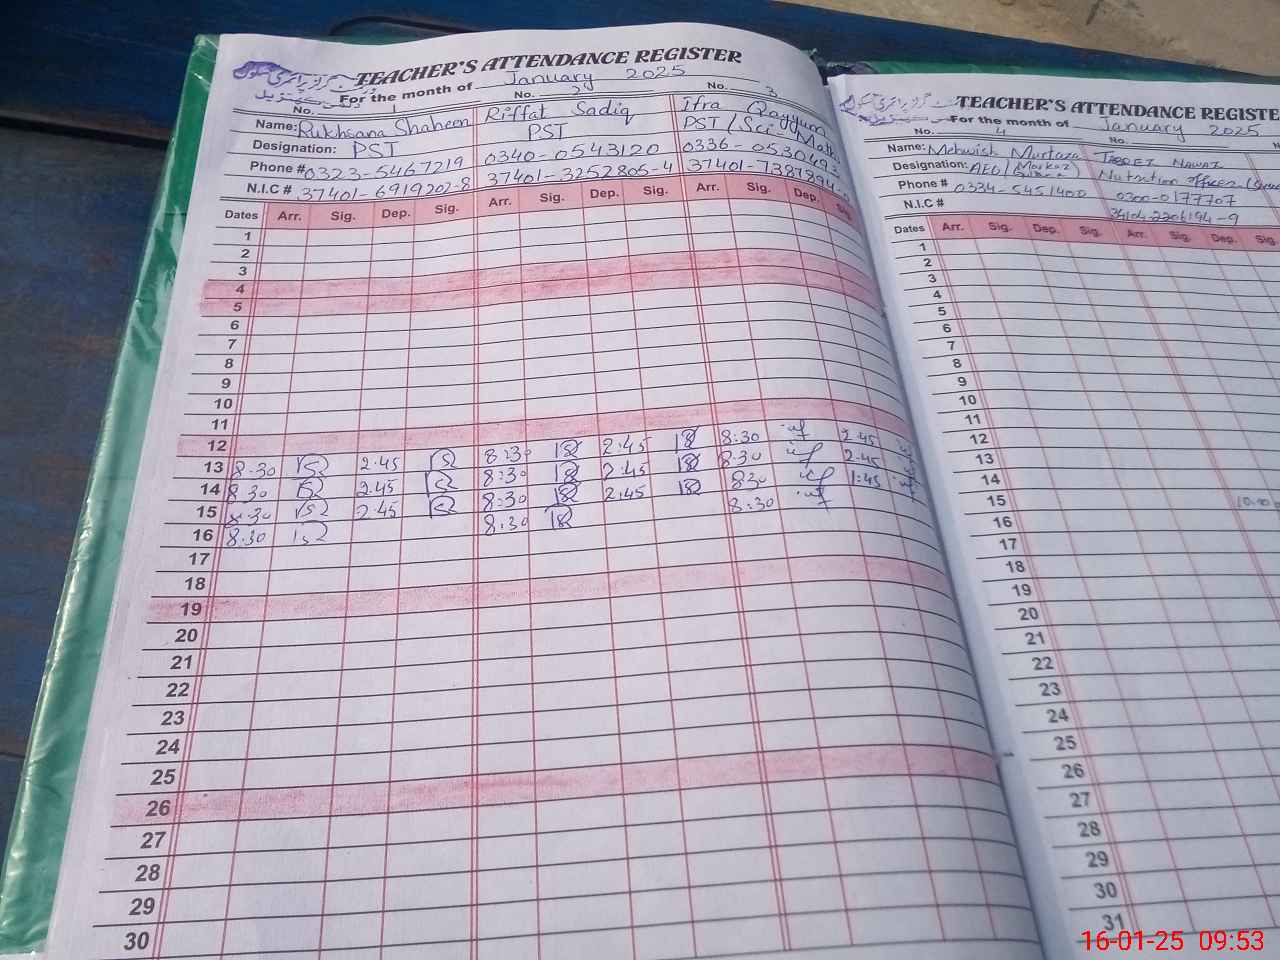 TEACHER'S ATTENDANCE REGISTER
For the month of January 2025
No. 1 No. 2 No. 3
Name: Rukhsana Shaheen Riffat Sadiq Ifra Qayyum
Designation: PST PST PST / Sci Math
Phone # 0323-5467219 0340-0543120 0336-0530493
N.I.C # 37401-6919202-8 37401-3252805-4
Dates Arr. Sig. Dep. Sig. Arr. Sig. Dep. Sig. Arr. Sig. Dep. Sig.
1
2
3
4
5
6
7
8
9
10
11
12
13 8.30 2.45 8:30 2:45 8:30 2.45
14 8.30 2.45 8:30 2:45 8:30 2.45
15 8.30 2.45 8:30 2:45 830 1:45
16 8.30 8:30 8:30
17
18
19
20
21
22
23
24
25
26
27
28
29
30
TEACHER'S ATTENDANCE REGISTE
For the month of January 2025
No. 4 No.
Name: Mehwish Murtaza Nawaz
Designation: AEO (Markaz Nutrition officer
Phone # 0334-5451400 0300-0177707
N.I.C #
Dates Arr. Sig. Dep. Sig. Arr. Sig. Dep. Sig.
1
2
3
4
5
6
7
8
9
10
11
12
13
14
15
16
17
18
19
20
21
22
23
24
25
26
27
28
29
30
31
16-01-25 09:53